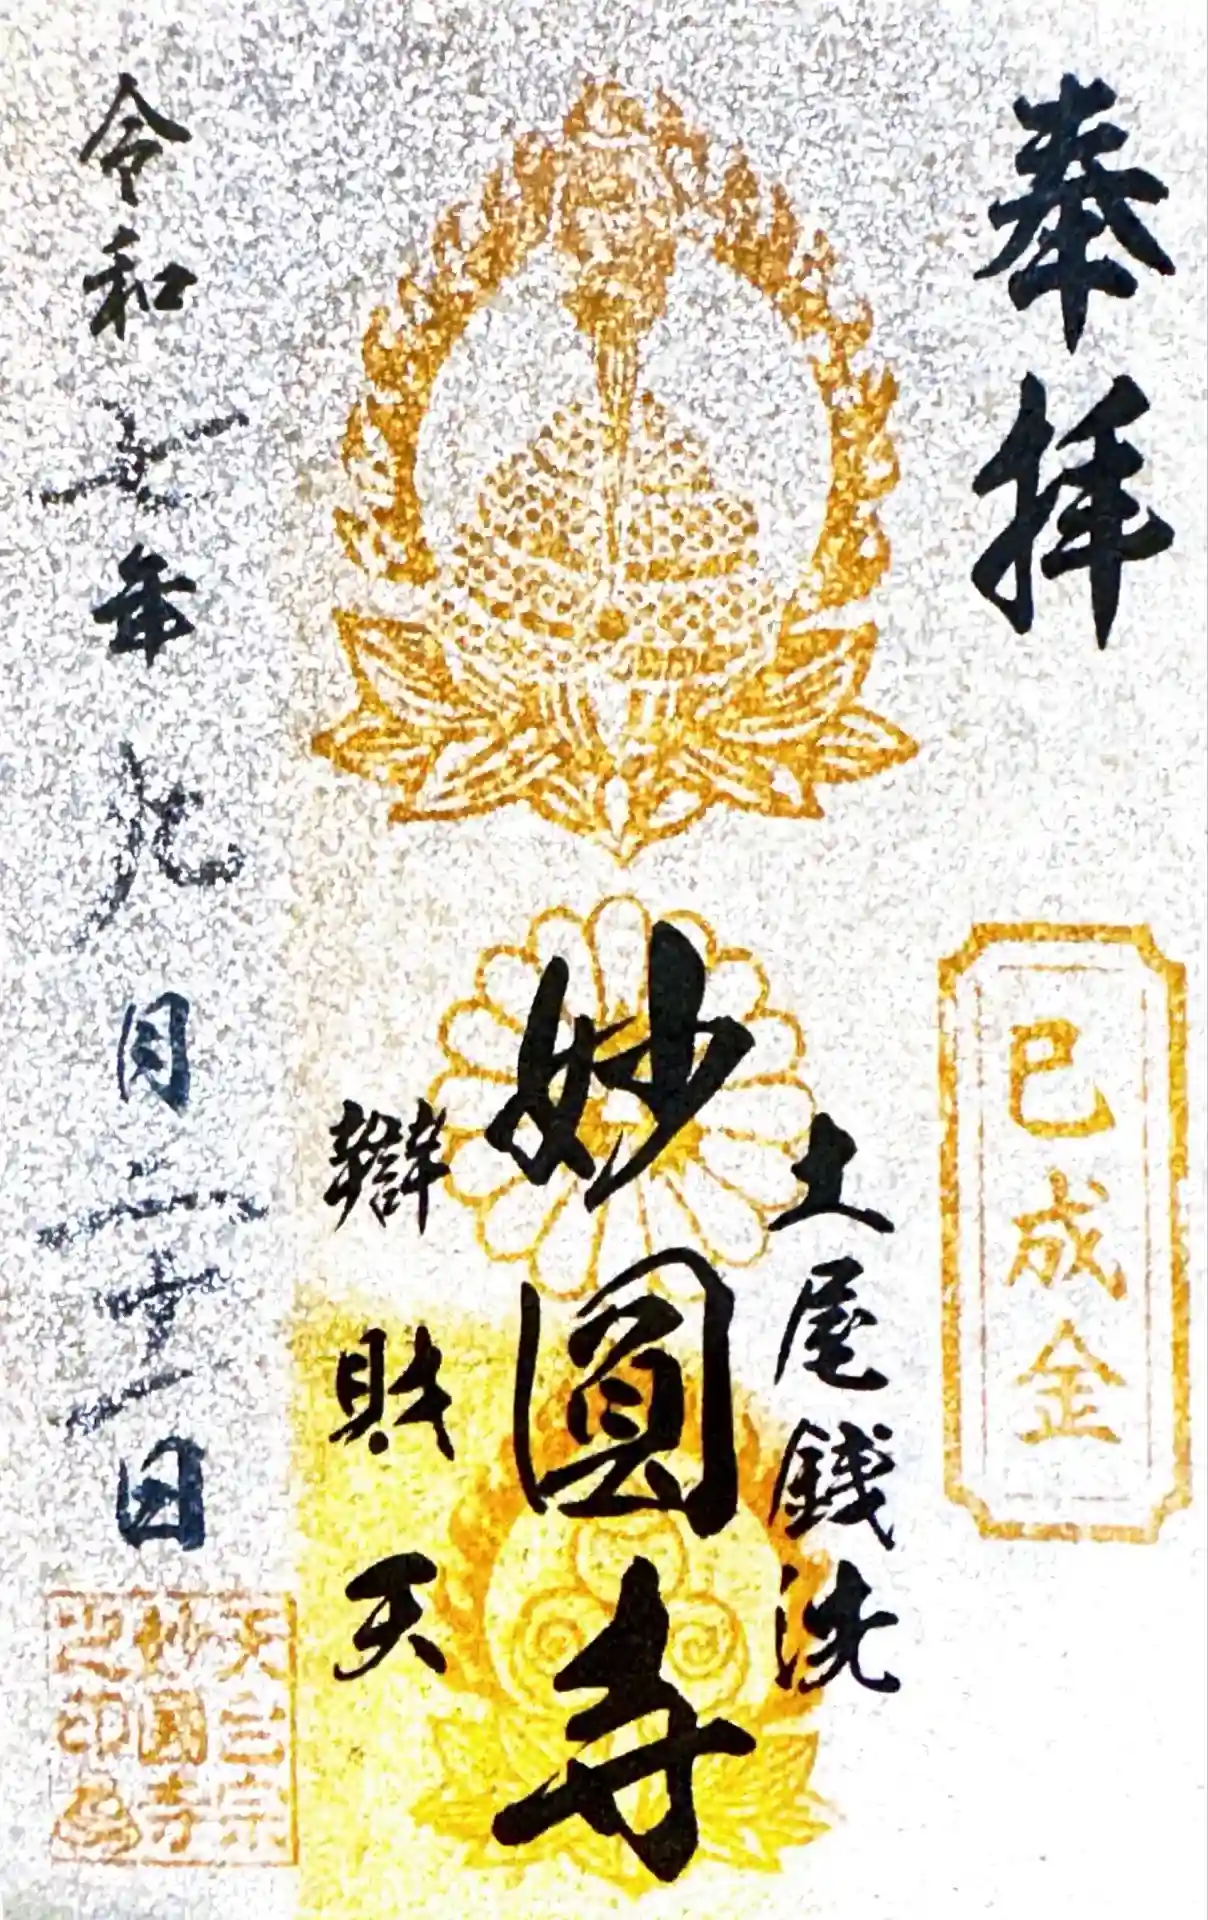 奉拝
巳成金
土屋銭洗
妙圓寺
辯財天
令和七年九月二十一日
天台宗
妙圓寺
之印